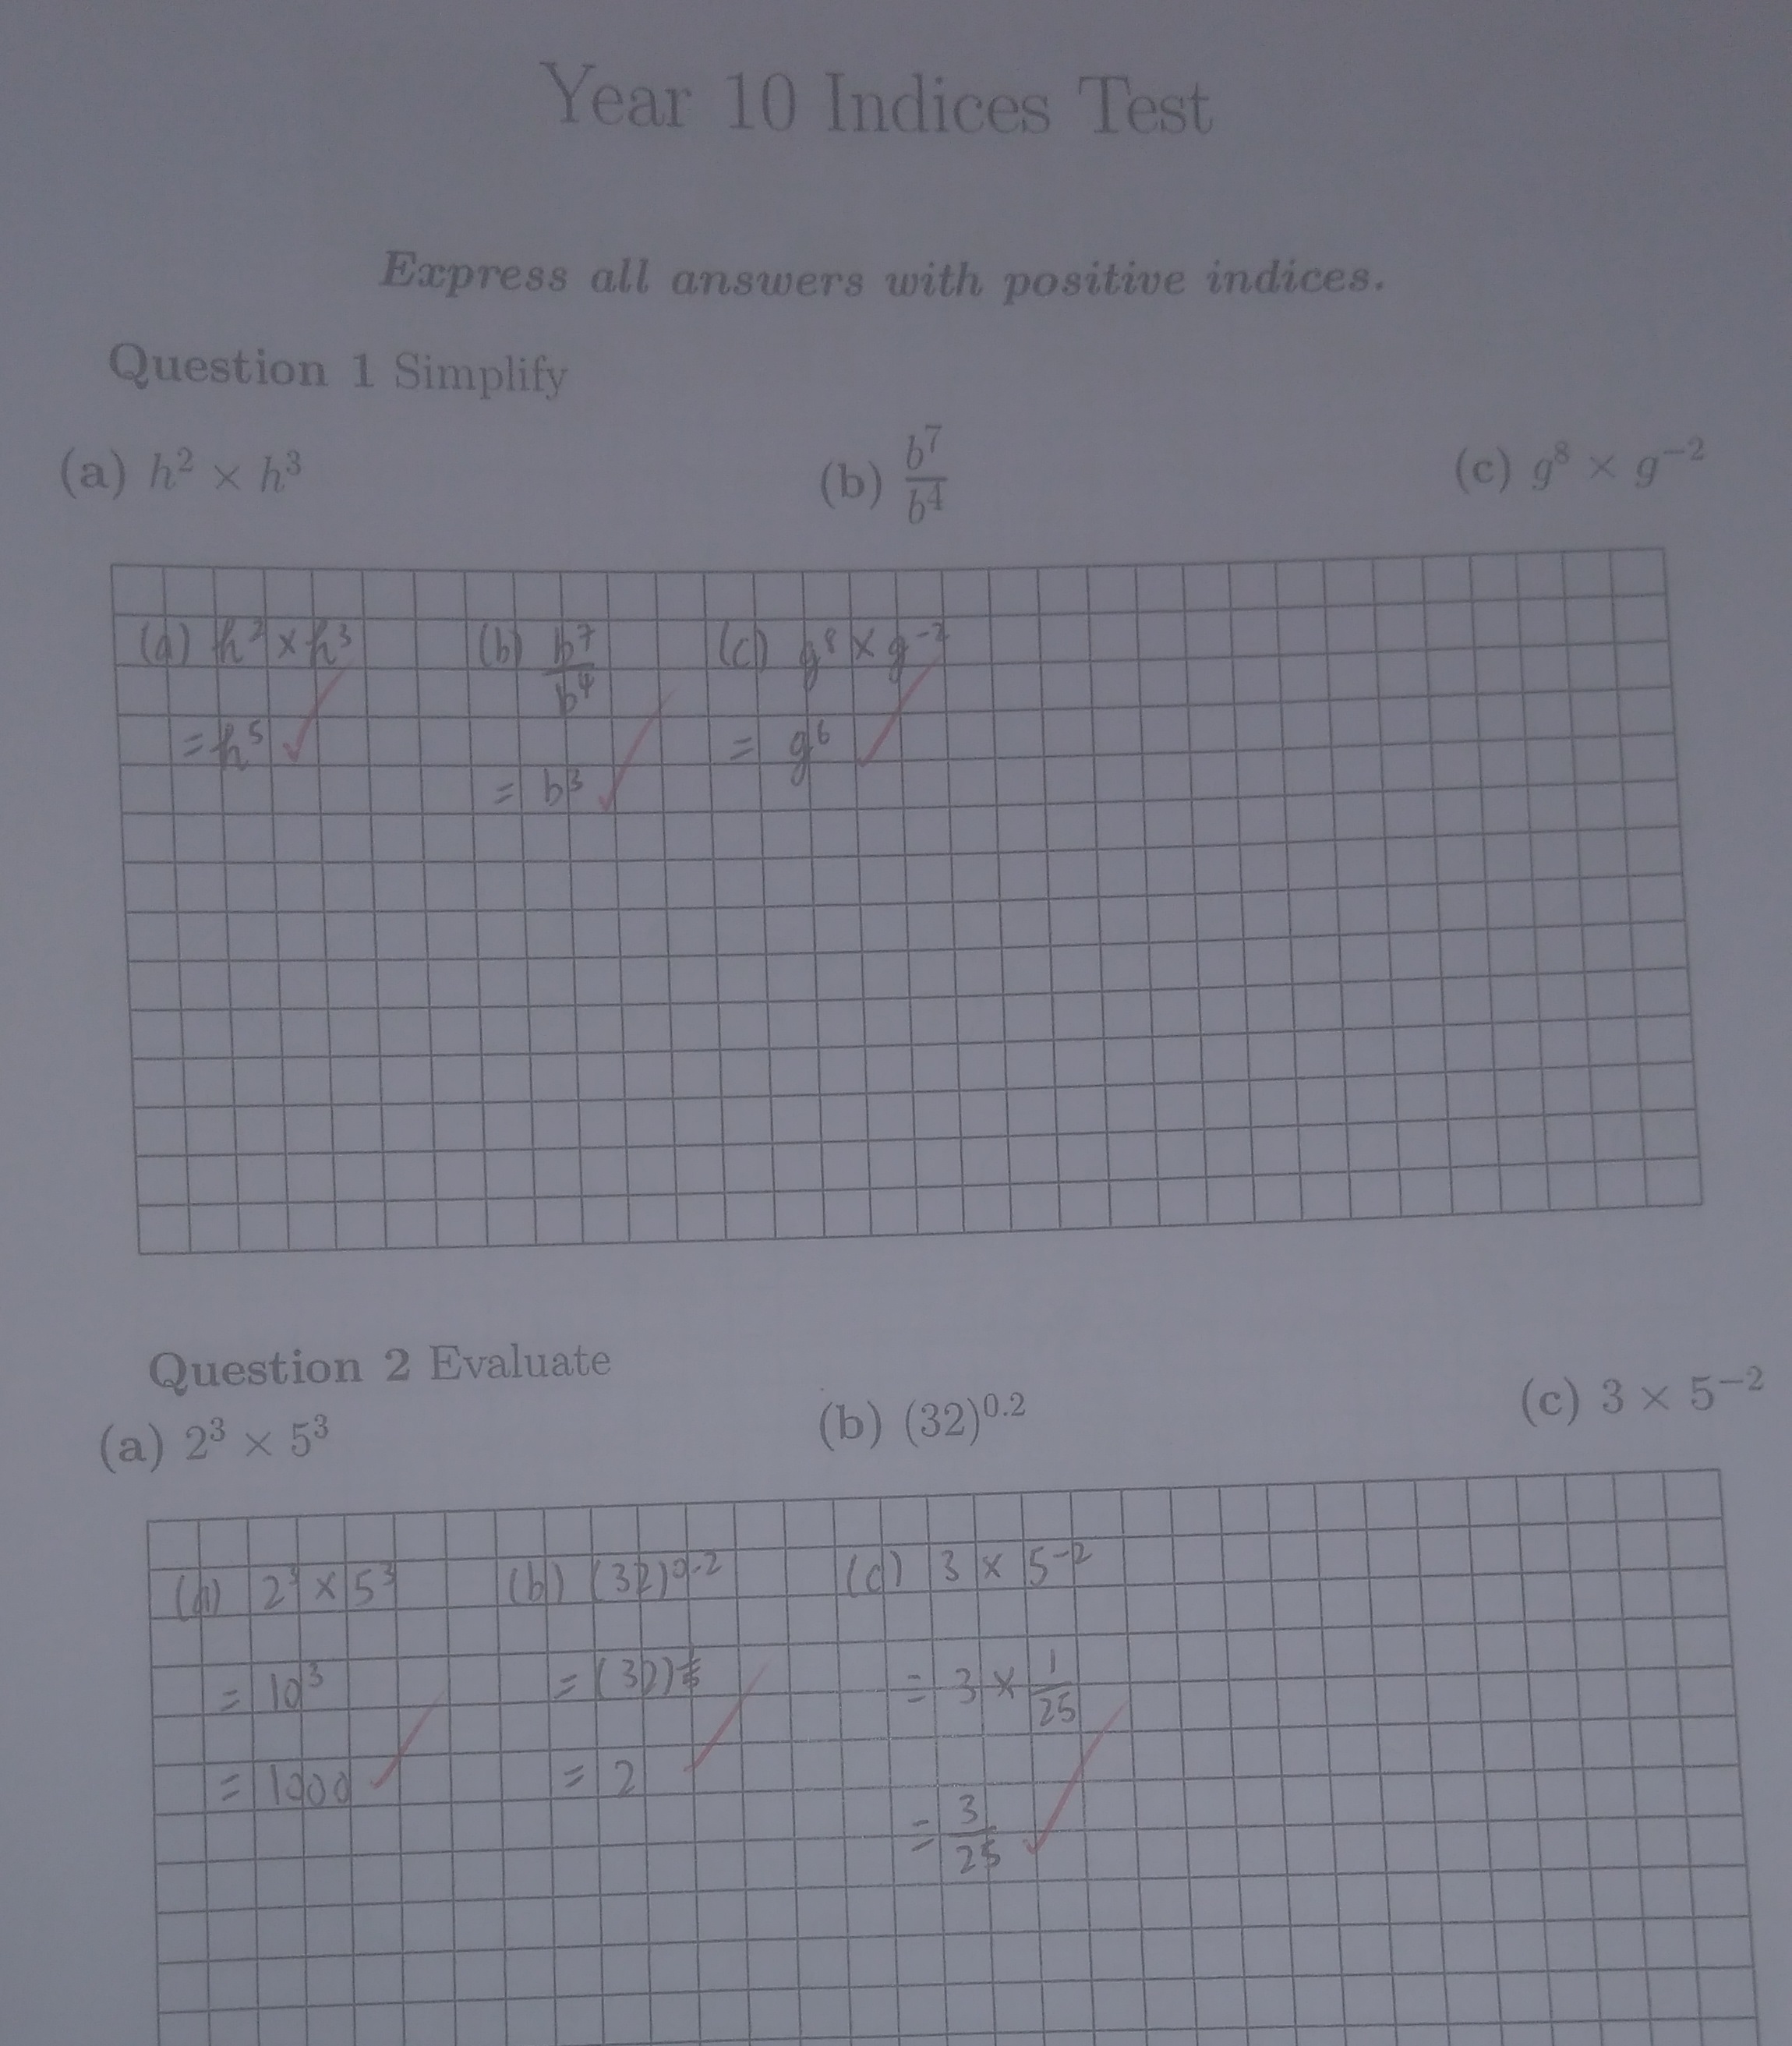 Year 10 Indices Test
Express all answers with positive indices.
Question 1 Simplify
(a) h² × h³ (b) b⁷/b⁴ (c) g⁸ × g⁻²
(a) h² × h³ (b) b⁷/b⁴ (c) g⁸ × g⁻²
= h⁵ = b³ = g⁶
Question 2 Evaluate
(a) 2³ × 5³ (b) (32)^0.2 (c) 3 × 5⁻²
(a) 2³ × 5³ (b) (32)^0.2 (c) 3 × 5⁻²
= 10³ = (32)^1/5 = 3 × 1/25
= 1000 = 2 = 3/25